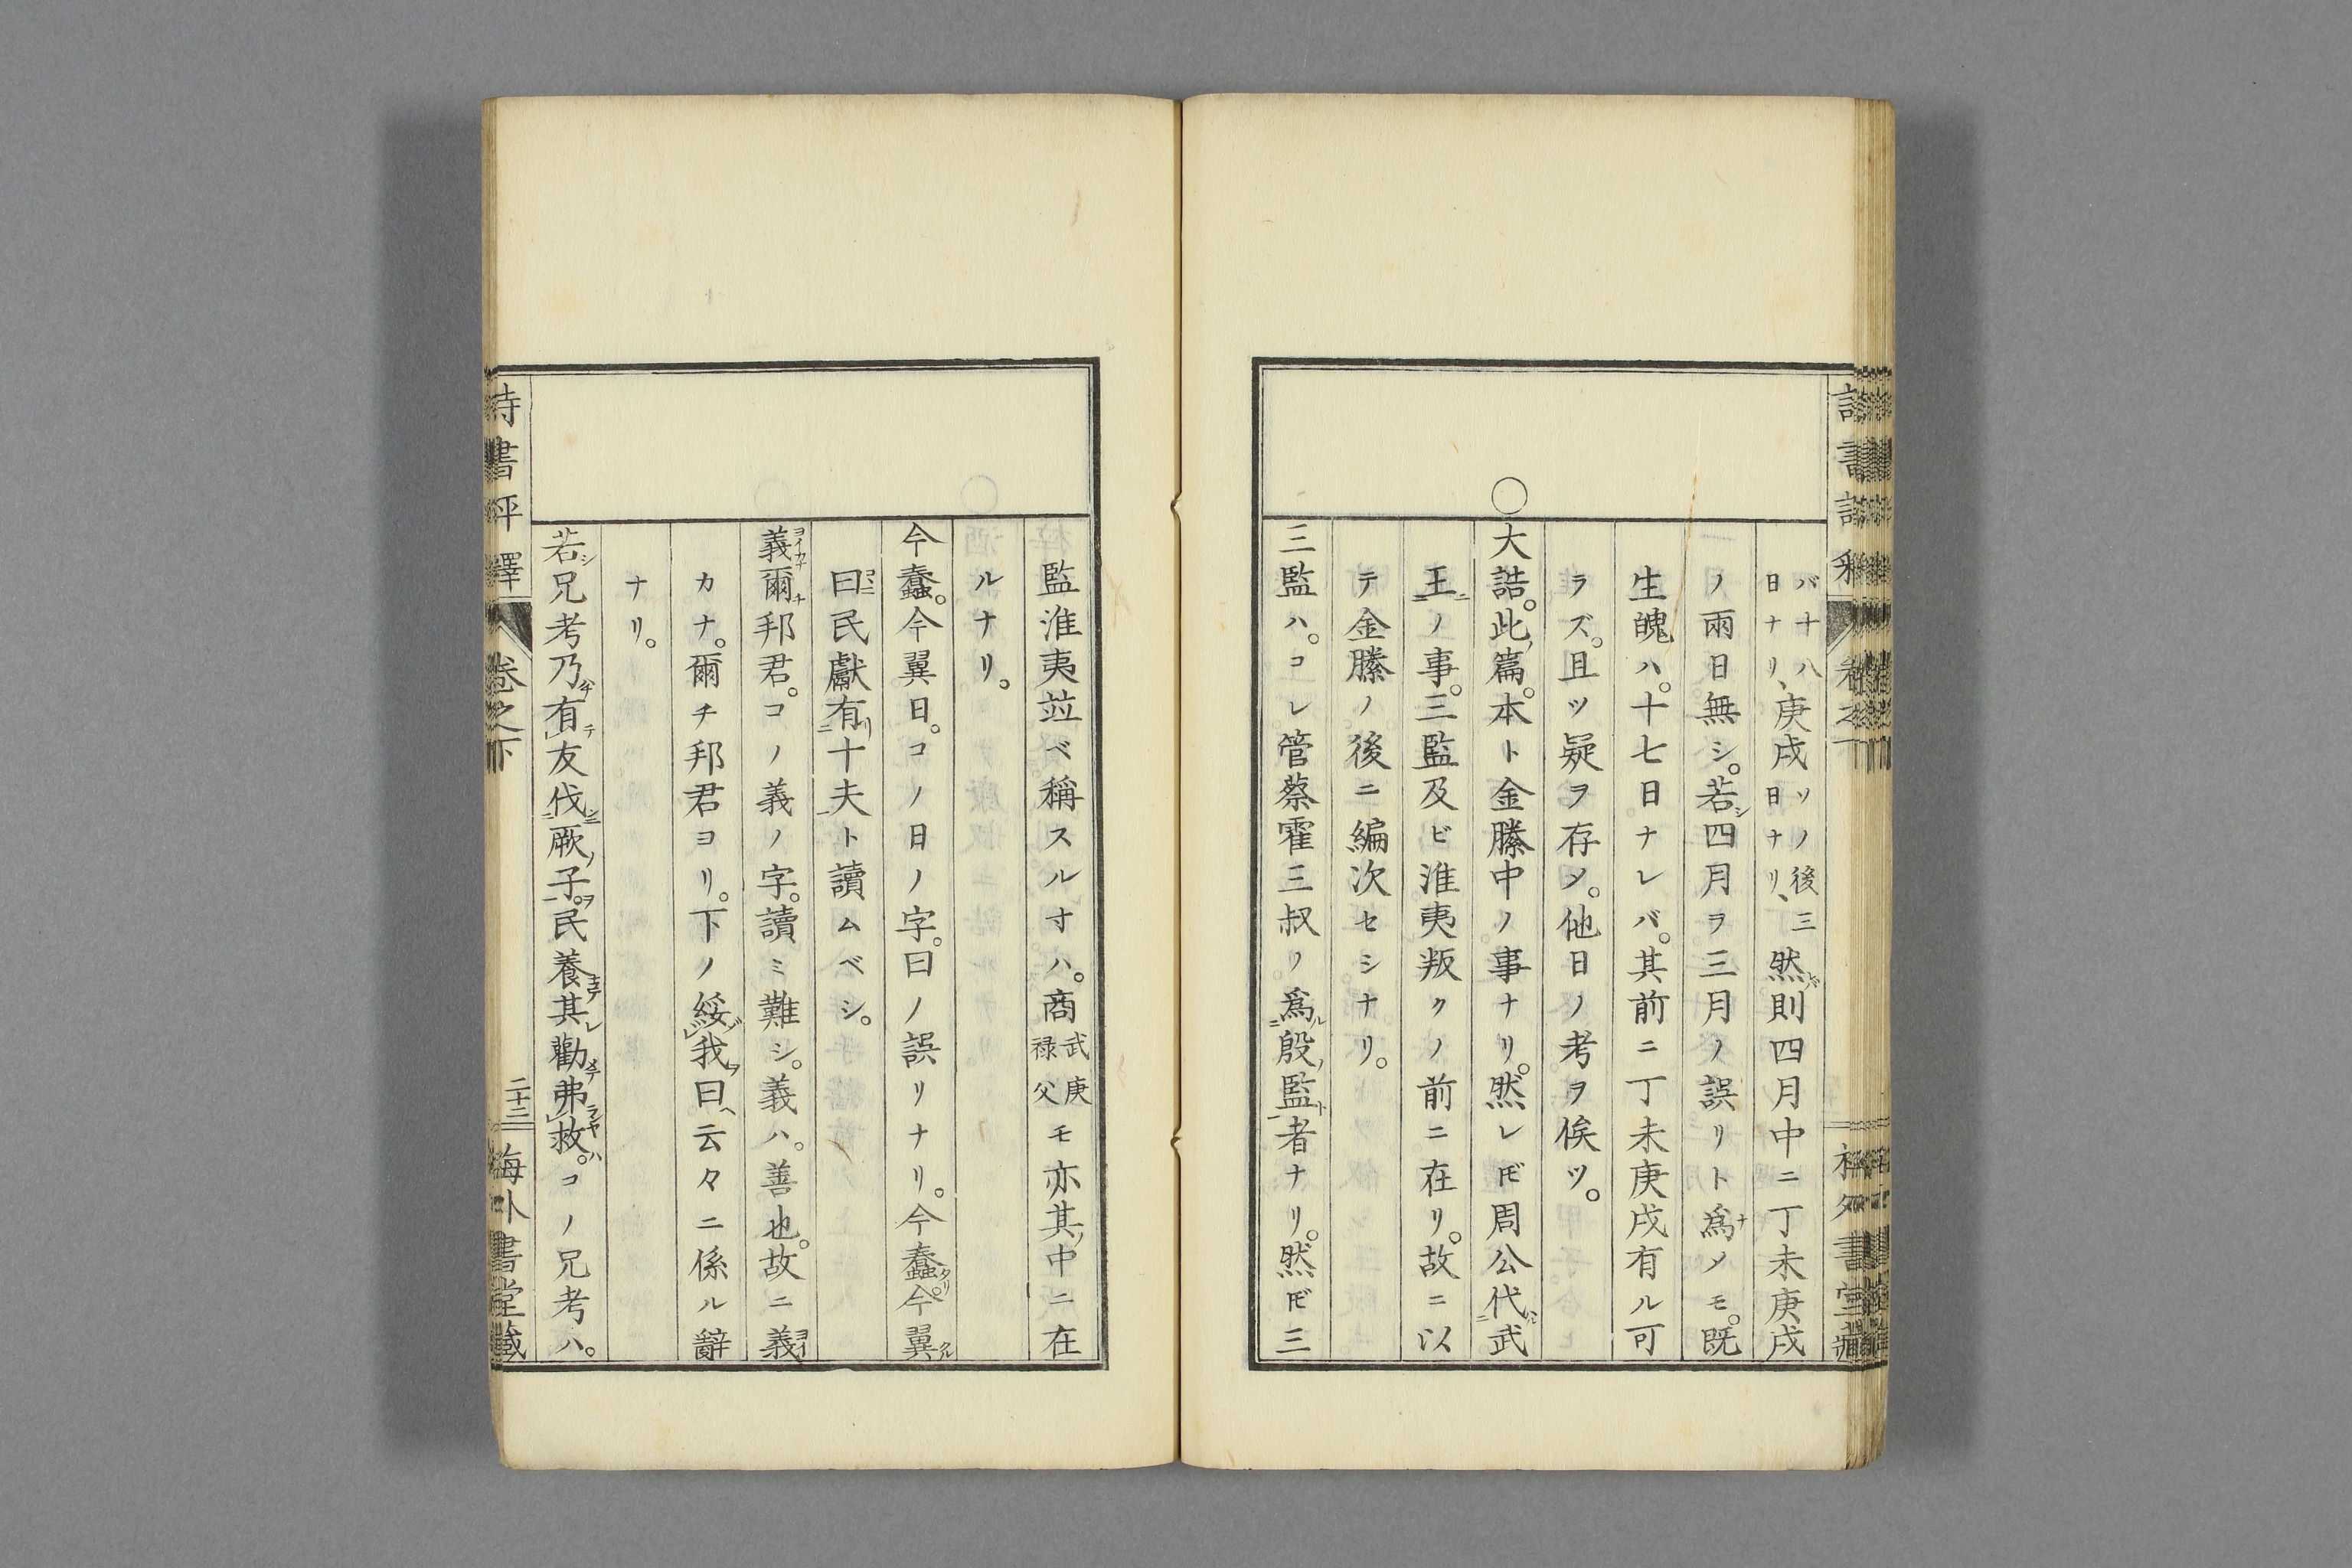 バ十八日ナリ、庚戌ソノ後三日ナリ、然バ則四月中ニ丁未庚戌
ノ兩日無シ。若シ四月ヲ三月ノ誤リト爲ナメモ。既
生魄ハ。十七日ナレバ。其前ニ丁未庚戌有ル可
ラズ。且ツ疑ヲ存シ。他日ノ考ヲ俟ツ。
○
大誥。此ノ篇。本ト金縢中ノ事ナリ。然レ𪜈周公代ハル二武
王ニ一ノ事。三監及ビ淮夷叛クノ前ニ在リ。故ニ以
テ金縢ノ後ニ編次セシナリ。
三監ハ。コレ管蔡霍三叔ノ爲ル二殷ノ監ト一者ナリ。然𪜈三
監淮夷竝ベ稱スルオハ。商武庚禄父モ亦其ノ中ニ在
ルナリ。
今蠢。今翼日。コノ日ノ字。曰ノ誤リナリ。今蠢タリ。今翼タル
曰コヽニ民獻有リ二十夫一ト讀ムベシ。
義ヨイカナ爾チ邦君。コノ義ノ字。讀ミ難シ。義ハ。善也。故ニ義ヨイ
カナ。爾チ邦君ヨリ。下ノ綏ゾレ我ヲ曰ヘ云々ニ係ル辭
ナリ。
若シ兄考乃有テ友伐二厥ノ子ヲ一。民養其レ勸メテ弗ランヤレ救ハ。コノ兄考ハ。
詩書評釋
卷之下
二十二
海外書堂藏